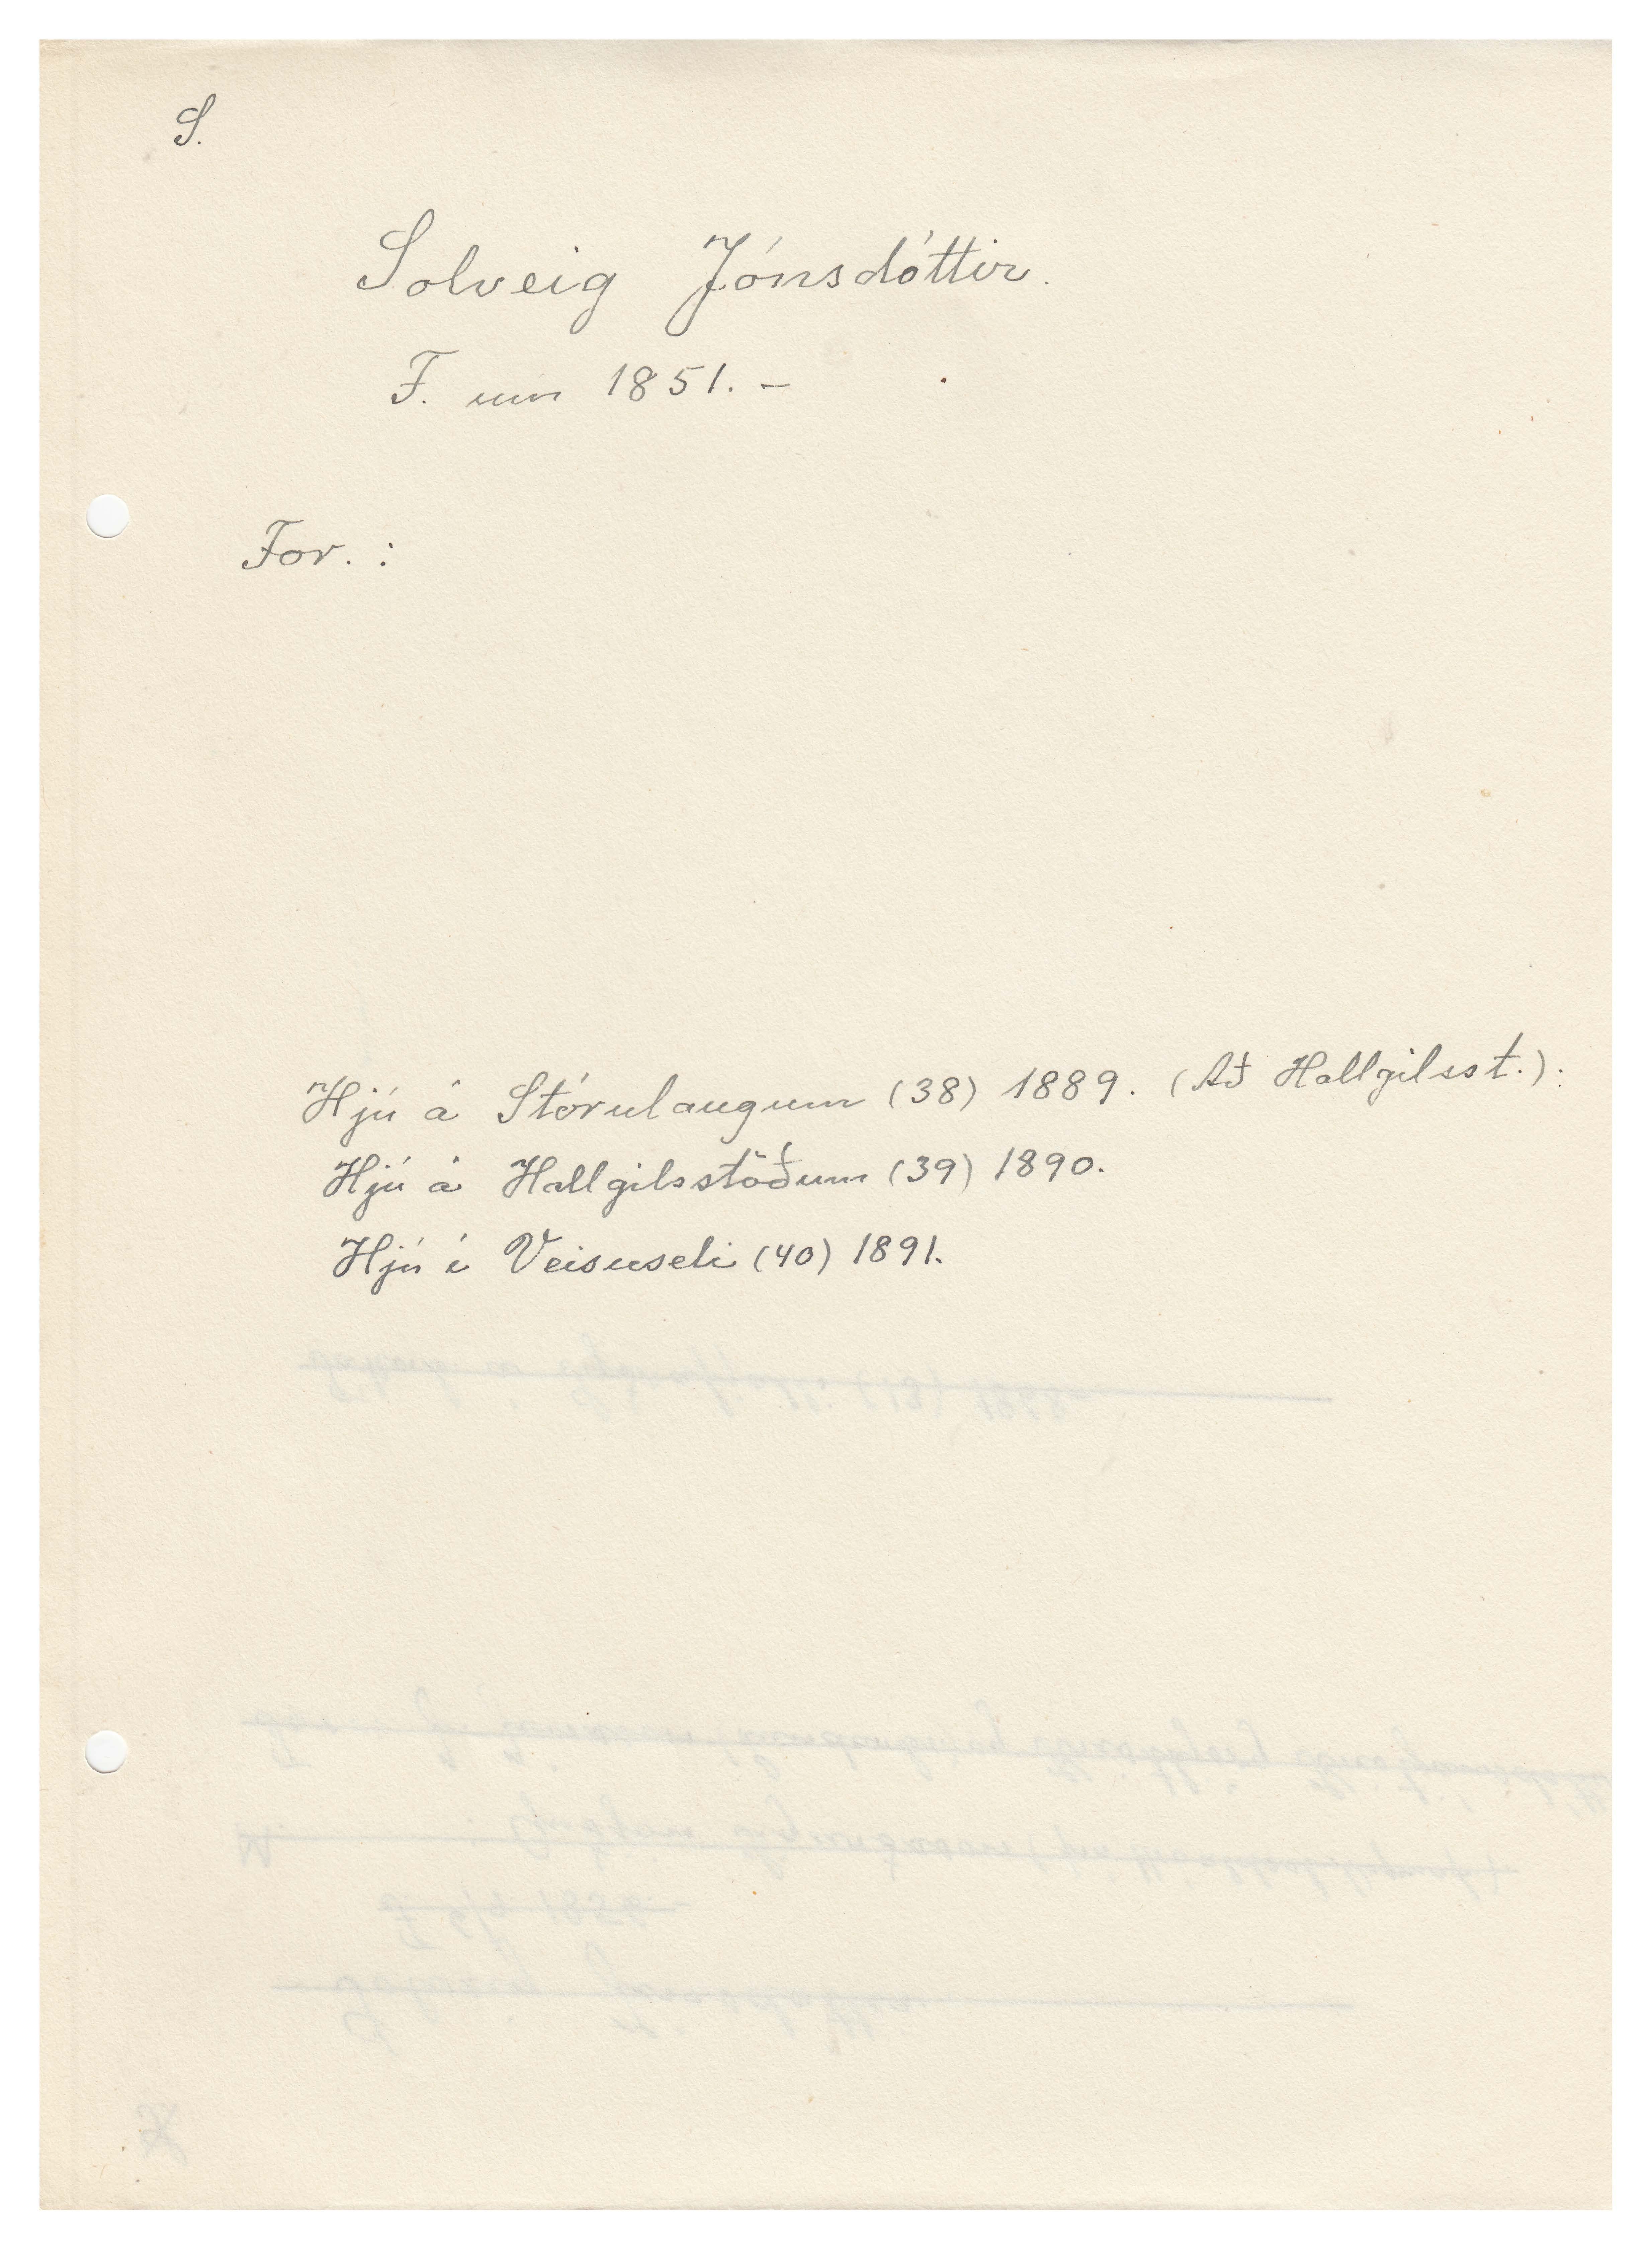 S.
Solveig Jónsdóttir.
F. um 1851. –
For. :
Hjú á Stórulaugum (38) 1889. (Að Hallgilsst.).
Hjú á Hallgilsstöðum (39) 1890.
Hjú í Veisuseli (40) 1891.